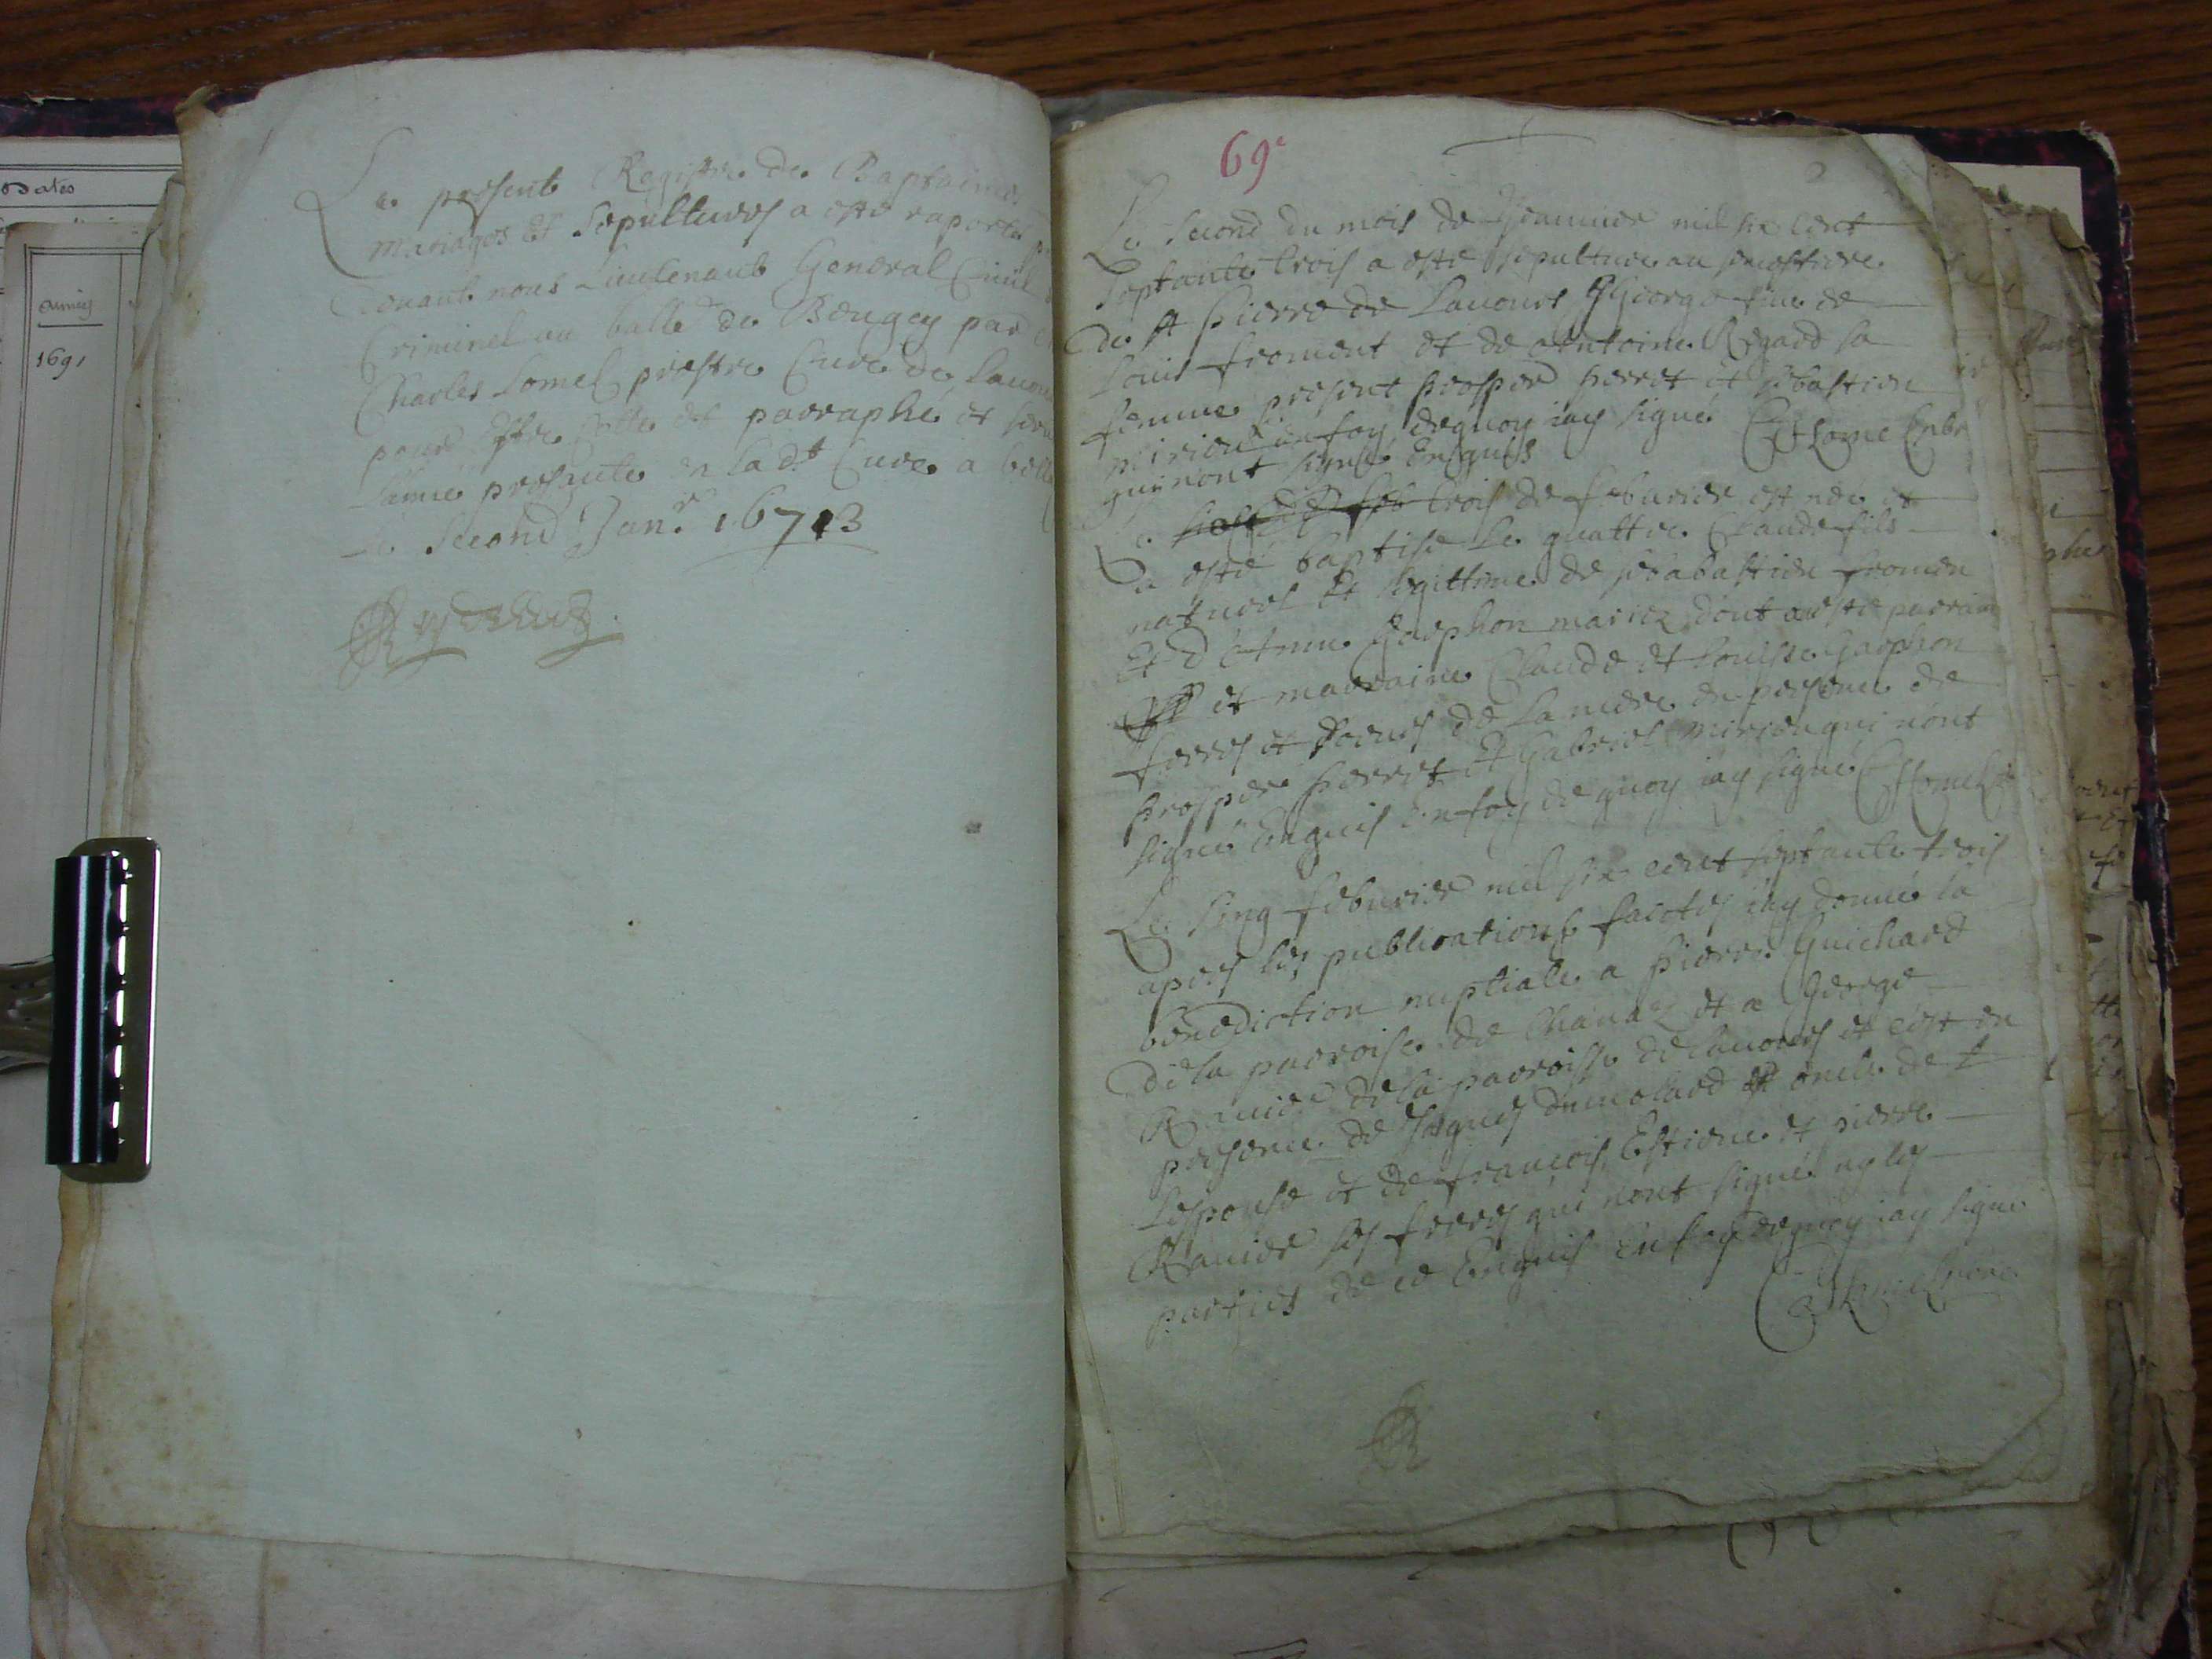 Dates
années
1691
Le present Registre de Baptaime
Mariages Et Sepultures a esté raporté
devant nous Lieutenant General Civil
Criminel au balle de Beugey par
Charles Lomel prestre Cure de Lavou
pour estre cotte et paraphé et ser
Lannée presante en la dt Cure a bell
Le Second Janr 1673
69e
2
Le second du mois de Jeanvier mil six cent
septante trois a esté sepulture au simestiere
de st pierre de Lavours George fille de
Louis froment et de Antoine Regard sa
femme present prosper perret et sebastien
mirieu en foy dequoy iay signé
qui nont signé Enquis
Le trois de feburier est née et
a esté baptise le quattre Claude fils
naturel et legittime de sebabastien fromen
Et d'Anne Garphon mariez dont a este parrain
et marraine Claude et Louisse Garphon
freres et soeurs de la mere en presence de
prospere perret et Gabriel mirieu qui nont
signé Enquis en foy de quoy iay signé
Le sinq feburier mil six cent septante trois
apres les publications faictes iay donné la
benediction nuptiale a pierre Guichard
de la parroise de Chanaz et a George
Ravier de la parroisse de Lavours et cest en
presence de Jaques dumolard oncle de
lespouse et de françois Estiene et pierre
Ravier ses freres qui nont signé ny les
parties de ce Enquis en foy dequoy iay signé